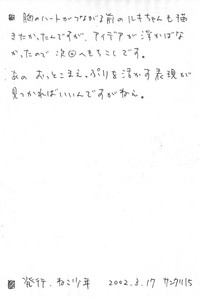 胸のハートがつながる前のルキちゃんも描
きたかったんですが、アイデアが浮かばな
かったので次回へもちこしです。
あの おっとこまえっぷりを活かす表現が
見つかればいいんですがねえ。
発行.ねこ少年 2002.3.17 サンクリ15